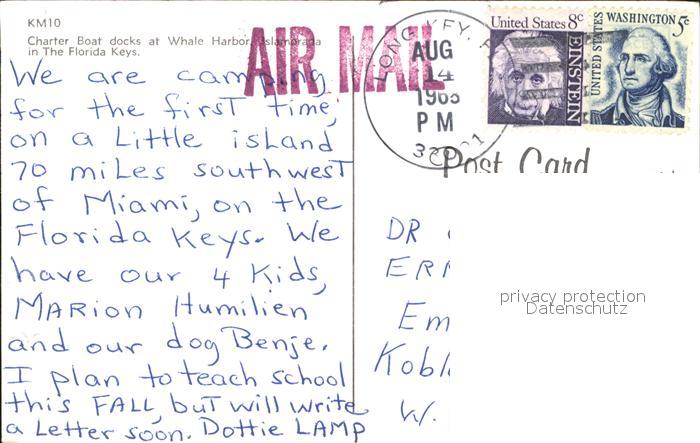 KM10
Charter Boat docks at Whale Harbor, Islamorada
in The Florida Keys.
AIR MAIL
LONG KEY, F
AUG
14
PM
United States 8c
EINSTEIN
WASHINGTON 5c
UNITED STATES
Post Card
We are camping
for the first time,
on a Little island
70 miles southwest
of Miami, on the
Florida Keys. We
have our 4 Kids,
MARION Humilien
and our dog Benje.
I plan to teach school
this FALL, but will write
a Letter soon. Dottie LAMP
DR
ER
Em
Kobl
W.
privacy protection
Datenschutz